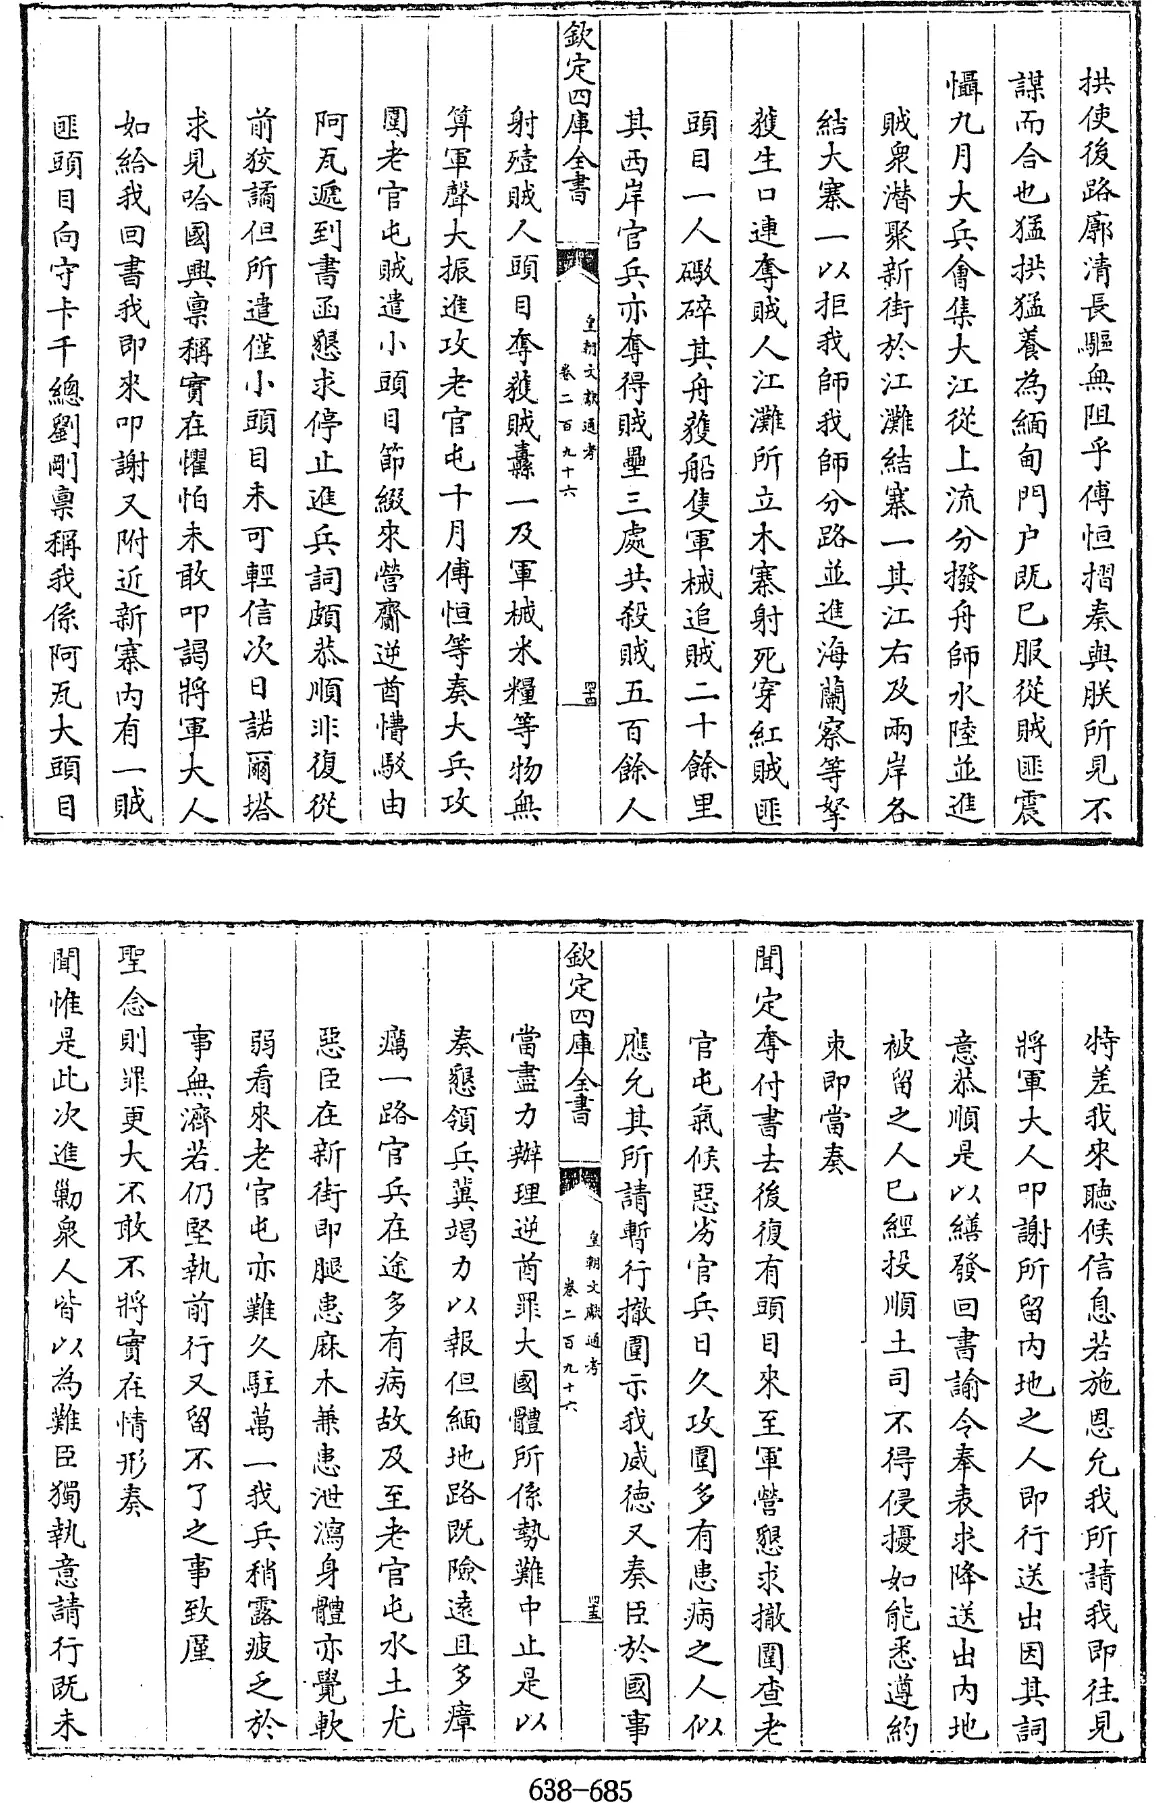 拱使後路廓清長驅無阻乎傅恒摺奏與朕所見不
謀而合也猛拱猛養為緬甸門户既已服從賊匪震
懾九月大兵會集大江從上流分撥舟師水陸並進
賊衆潜聚新街於江灘結寨一其江右及兩岸各
結大寨一以拒我師我師分路並進海蘭察等拏
獲生口連奪賊人江灘所立木寨射死穿紅賊匪
頭目一人礮碎其舟獲船隻軍械追賊二十餘里
其西岸官兵亦奪得賊壘三處共殺賊五百餘人
欽定四庫全書
皇朝文獻通考
卷二百九十六
四十四
射殪賊人頭目奪獲賊纛一及軍械米糧等物無
算軍聲大振進攻老官屯十月傅恒等奏大兵攻
圍老官屯賊遣小頭目節綴來營齎逆酋懵駮由
阿瓦遞到書函懇求停止進兵詞頗恭順非復從
前狡譎但所遣僅小頭目未可輕信次日諾爾塔
求見哈國興稟稱實在懼怕未敢叩謁將軍大人
如給我回書我即來叩謝又附近新寨內有一賊
匪頭目向守卡千總劉剛稟稱我係阿瓦大頭目
特差我來聽候信息若施恩允我所請我即往見
將軍大人叩謝所留内地之人即行送出因其詞
意恭順是以繕發回書諭令奉表求降送出内地
被留之人已經投順土司不得侵擾如能悉遵約
束即當奏
聞定奪付書去後復有頭目來至軍營懇求撤圍查老
官屯氣候惡劣官兵日久攻圍多有患病之人似
應允其所請暫行撤圍示我威德又奏臣於國事
欽定四庫全書
皇朝文獻通考
卷二百九十六
四十五
當盡力辦理逆酋罪大國體所係勢難中止是以
奏懇領兵冀竭力以報但緬地路既險遠且多瘴
癘一路官兵在途多有病故及至老官屯水土尤
惡臣在新街即腿患麻木兼患泄瀉身體亦覺軟
弱看來老官屯亦難久駐萬一我兵稍露疲乏於
事無濟若仍堅執前行又留不了之事致廑
聖念則罪更大不敢不將實在情形奏
聞惟是此次進勦衆人皆以為難臣獨執意請行既未
638-685